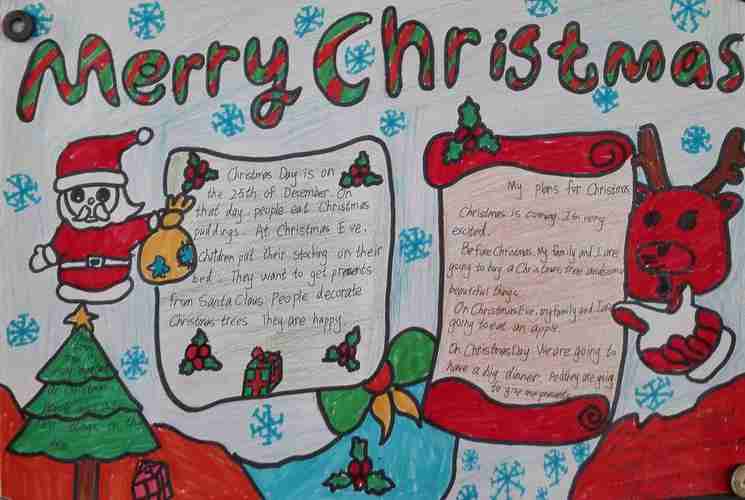 Merry Christmas
Christmas Day is on
the 25th of Desember. On
that day. people eat Christmas
puddings. At Christmas Eve,
children put their stocking on their
bed. They want to get presents
from Santa Claus. People decorate
Christmas trees. They are happy.
My plans for Christmas
Christmas is coming. I'm very
excited.
Before Christmas. My family and I are
going to buy a Christmas tree and some
beautiful things.
On Christmas Eve, my family and I are
going to eat an apple.
On Christmas Day We are going to
have a big dinner. And they are going
to give me presents.
of Christmas
on the